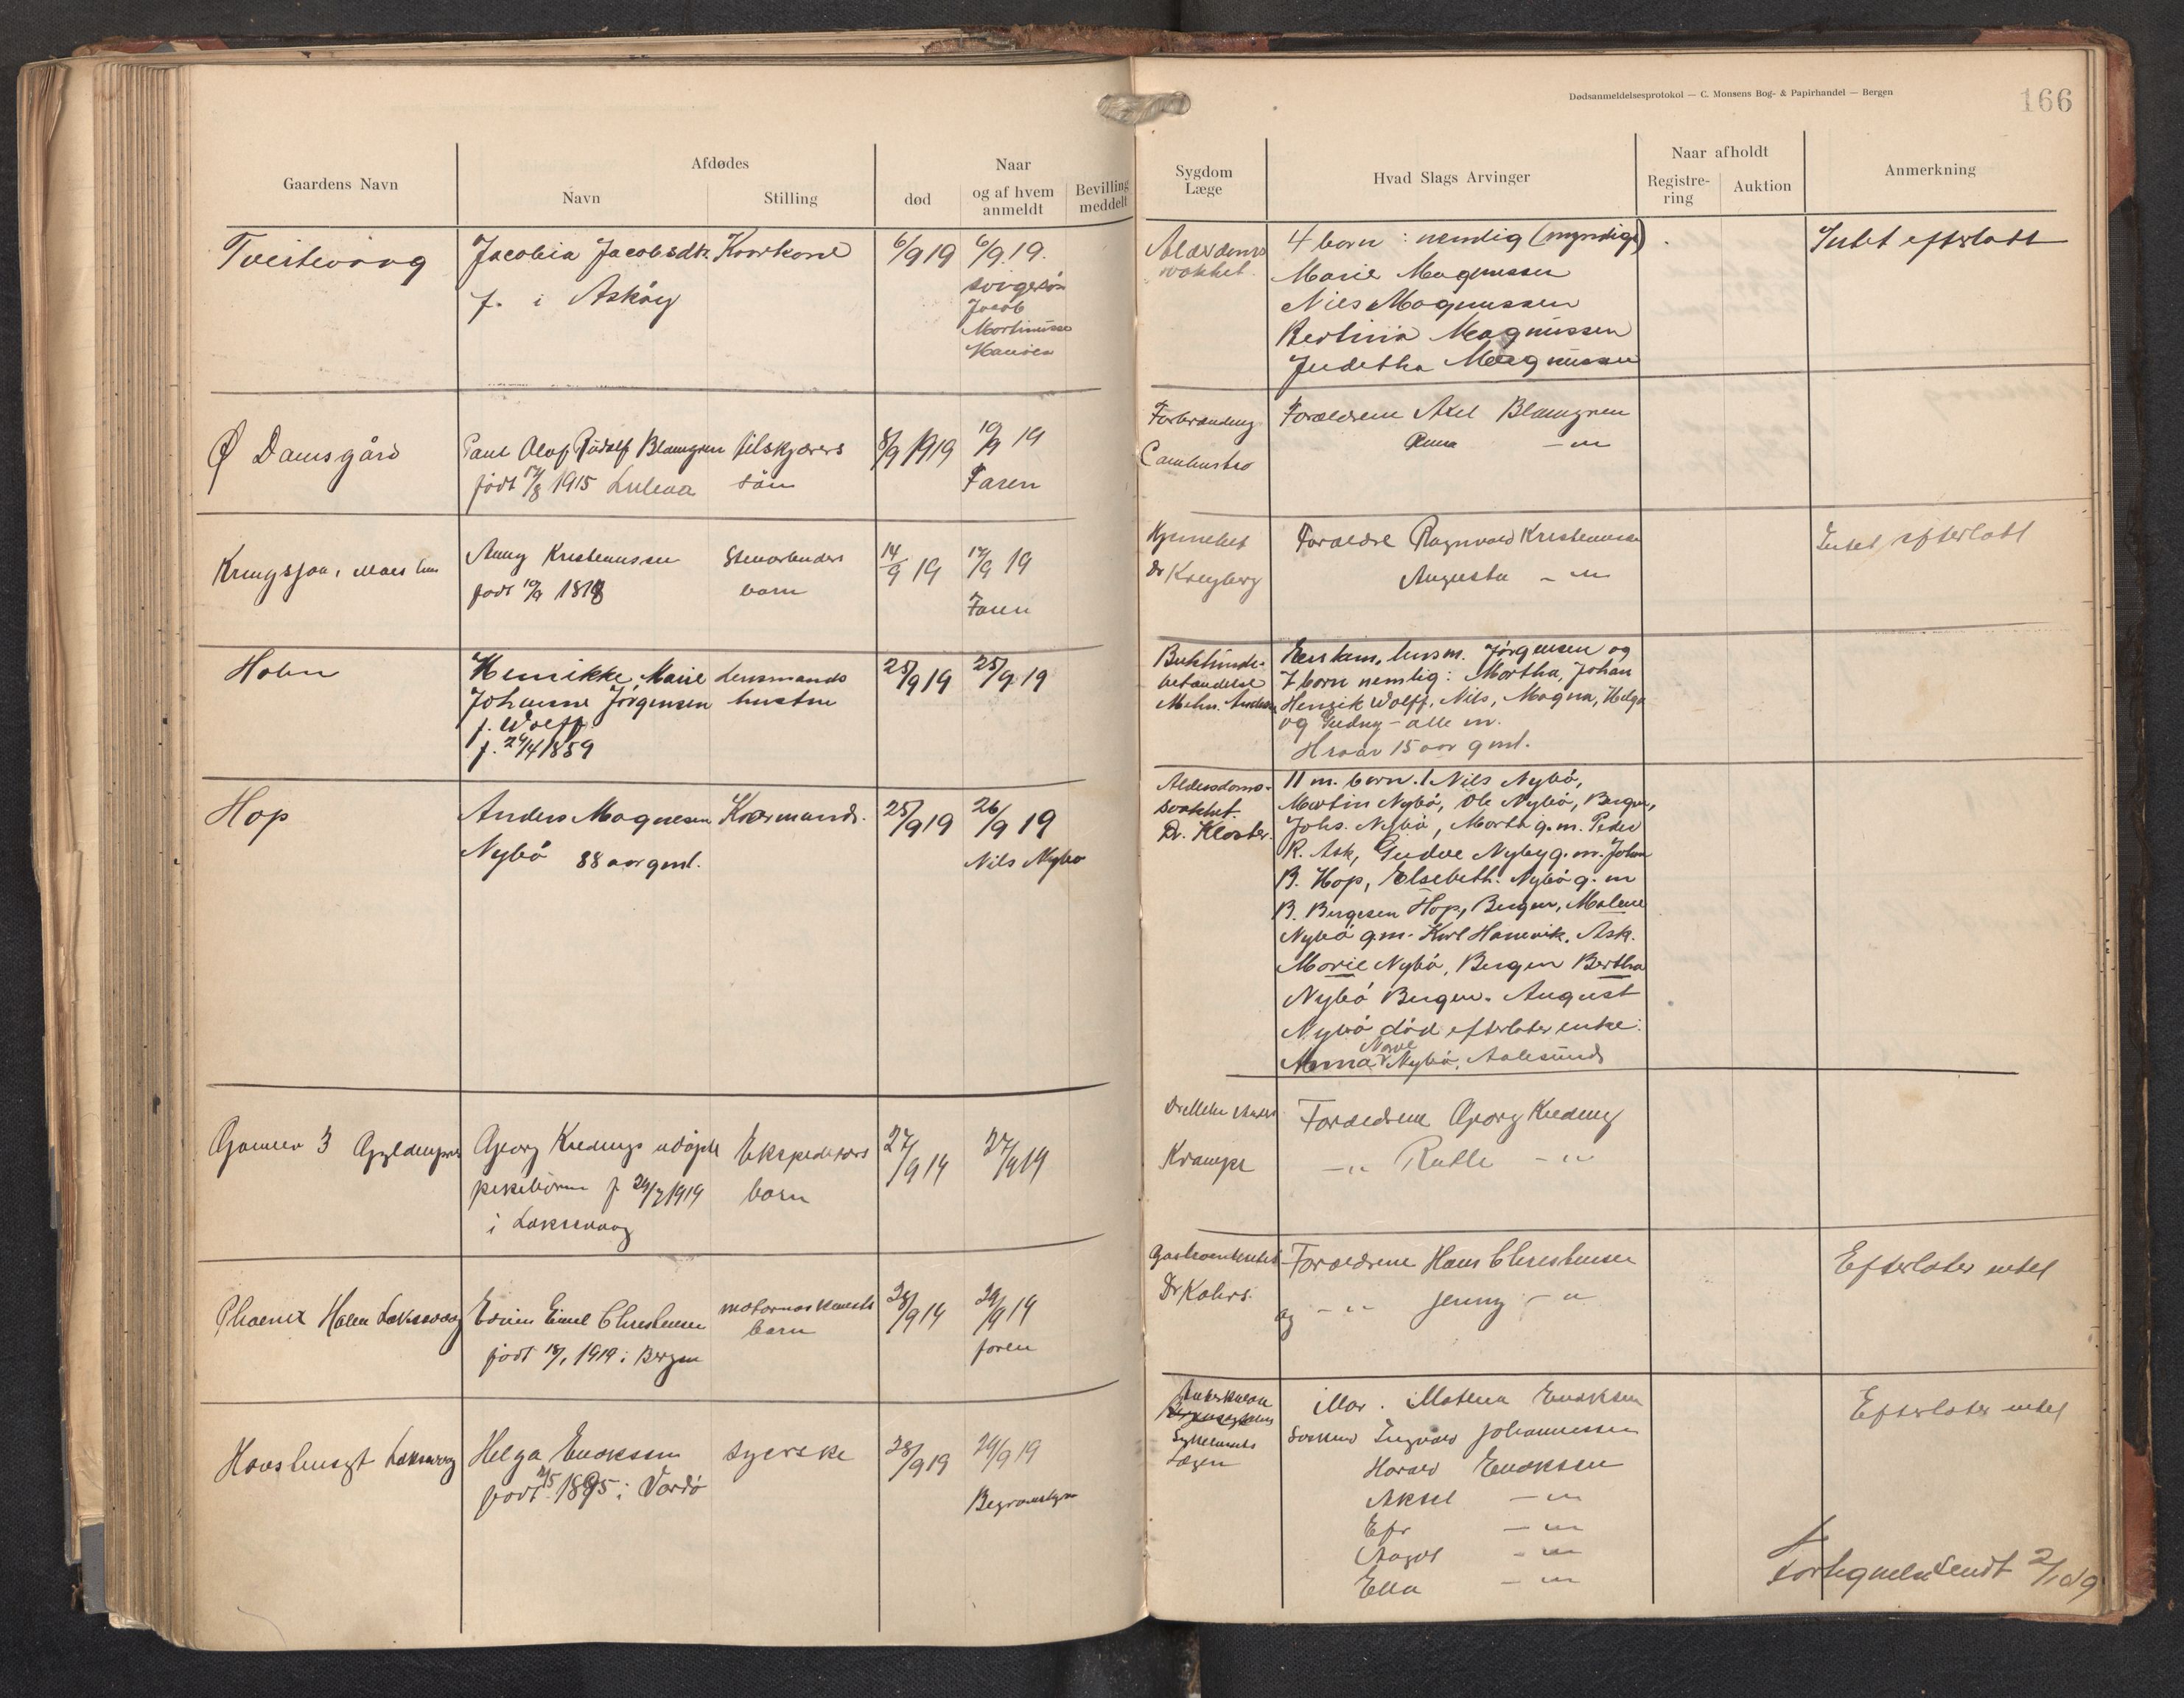 Dødsanmeldelsesprotokol — C. Monsens Bog- & Papirhandel — Bergen
166
Gaardens Navn
Afdødes
Navn
Stilling
Naar
død
og af hvem
anmeldt
Bevilling
meddelt
Sygdom
Læge
Hvad Slags Arvinger
Naar afholdt
Registre-
ring
Auktion
Anmerkning
Tveitevaag
Jacobia Jacobsdtr.
f. i Askøy
Kaarkone
6/9 19
6/9 19.
svigersøn
Jacob
Martinusse
Hansen
Alderdoms
svakhet.
4 born: nemlig (myndige)
Marie Magnussen
Nils Magnussen
Bertinia Magnussen
Judetha Magnussen
Intet efterlatt
Ø Damsgård
Paul Olof Rudolf Blamgren
født 17/8 1915 Luleaa
filskjærers
sön
8/9 1919
10/9 19
Faren
Forbrænding
Combustio
Forældrene Axel Blamgren
Anna — " —
Kringsjaa,
Anny Kristenussen
født 10/9 1918
Stenarbeiders
barn
14/9 19
17/9 19
Faren
Dr Kreyberg
Foraeldre Ragnvald Kristenusse
Augusta — " —
Intet efterlatt
Holen
Henrikke Marie
Johanne Jörgensen
f. Wolff
f. 24/4 1859
Lensmands
hustru
25/9 19
25/9 19
Bukhinde-
betændelse
Mehn. Andersen
Enkem. lensm. Jörgensen og
7 born nemlig: Martha, Johan
Henrik Wolff, Nils, Magna, Helga
og Gudny — alle m.
Hroar 15 aar gml.
Hop
Anders Magnesen
Nybö 88 aar gml.
Kaarmand.
25/9 19
26/9 19
Nils Nybö
Alderdoms-
svakhet.
Dr. Kloster.
11 m. born. 1 Nils Nybö,
Martin Nybö, Ole Nybö, Bergen,
Johs. Nybö, Marth g. m. Peder
R. Ask, Gudve Nyby g. m. Johan
B. Hop, Elsebeth. Nybö g. m
B. Birgesen Hop, Bergen, Malene
Nybö g. m. Karl Hanevik, Ask.
Marie Nybö, Bergen Bertha
Nybö Bergen. August
Nybö död efterlater enke:
Anna Nybö, Aalesund
Gamlev 3
Georg Kredings udöpte
pikebörn f. 24/7 1919
i Laksevaag
Ekspeditörs
barn
27/9 19
27/9 19
Krampe
Forældrene Georg Kreding
— " — Rutle — " —
Phoenix Holen Laksevaag
Edvin Emil Christensen
født 18/1 1919 i Bergen
motormaskinists
barn
28/9 19
29/9 19
faren
Dr Kahrs.
Forældrene Hans Christensen
og — " — Jenny — " —
Efterlater intet
Laksevaag
Helga Enoksen
født 12/5 1895 i Vardö
syerske
28/9 19
29/9 19
Tuberkulose
Lægen
Mor. Mathea Enoksen
Søskend Ingvald Johannessen
Harald Enoksen
Aksel — " —
— " —
Aagot — " —
Ella — " —
Efterlater intet
Fortegnelse sendt 2/10 19